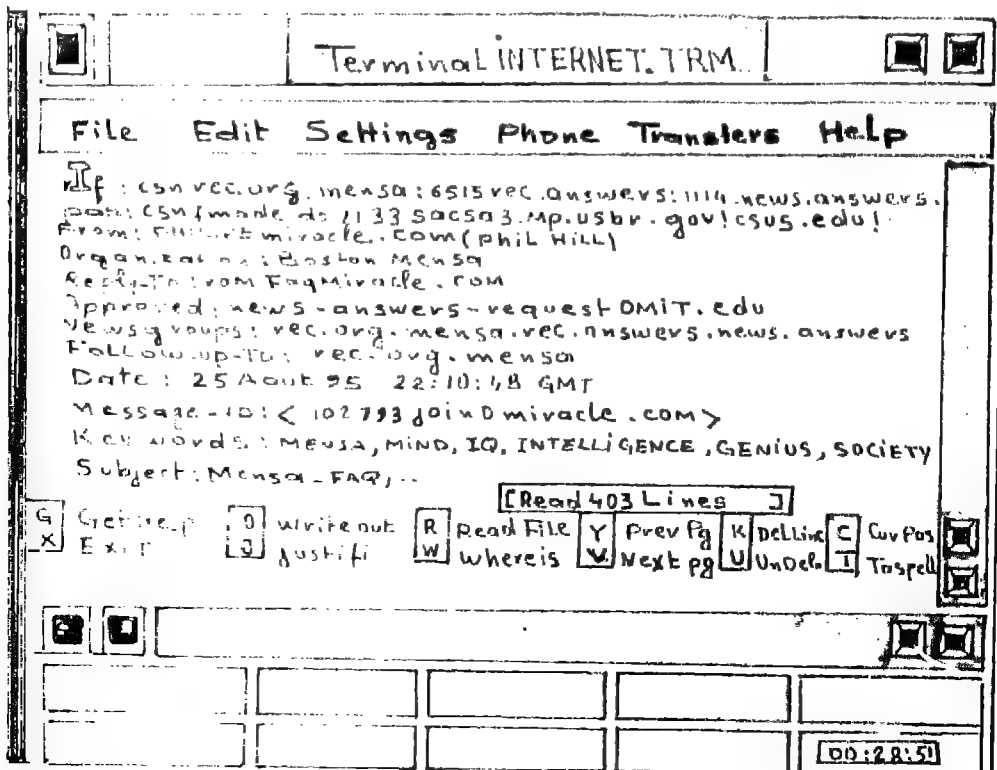 Terminal INTERNET.TRM
File Edit Settings Phone Transfers Help
: csn rec.org.mensa:6515 rec.answers:1114.news.answers.
1133 sacsa3.Mp.usbr.gov!csus.edu!
From: miracle.com(phil Hill)
Boston Mensa
FaqMiracle.com
Approved: news-answers-request OMIT.edu
Newsgroups: rec.org.mensa.rec.answers.news.answers
Follow-up-To: rec.org.mensa
Date: 25 Aout 95 22:10:48 GMT
Message-ID:< 102793joinDmiracle.com>
Key words: MENSA, MIND, IQ, INTELLIGENCE, GENIUS, SOCIETY
Subject: Mensa-FAQ,--
[Read 403 Lines ]
G O writeout R Read File Y Prev Pg K DelLine C CurPos
X Exit J Justifi W Whereis V Next pg U UnDel I Tospell
00:28:51